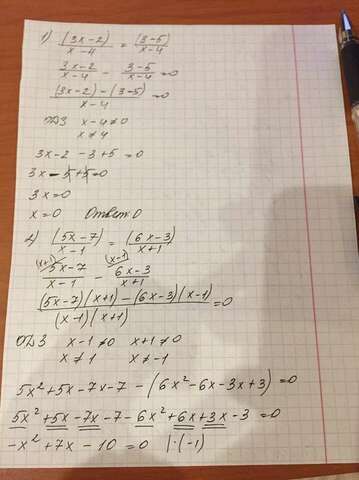 1) (3x-2)/x-4 = (3-5)/x-4
3x-2/x-4 - 3-5/x-4 =0
(3x-2)-(3-5)/x-4 =0
ОДЗ x-4≠0
x≠4
3x-2 -3+5=0
3x-5+5=0
3x=0
x=0 Ответ 0
2) (5x-7)/x-1 = (6x-3)/x+1
(x+1) 5x-7/x-1 - (x-1) 6x-3/x+1
(5x-7)(x+1)-(6x-3)(x-1)/(x-1)(x+1) =0
ОДЗ x-1≠0 x+1≠0
x≠1 x≠-1
5x²+5x-7x-7-(6x²-6x-3x+3)=0
5x²+5x-7x-7-6x²+6x+3x-3=0
-x²+7x-10=0 |·(-1)